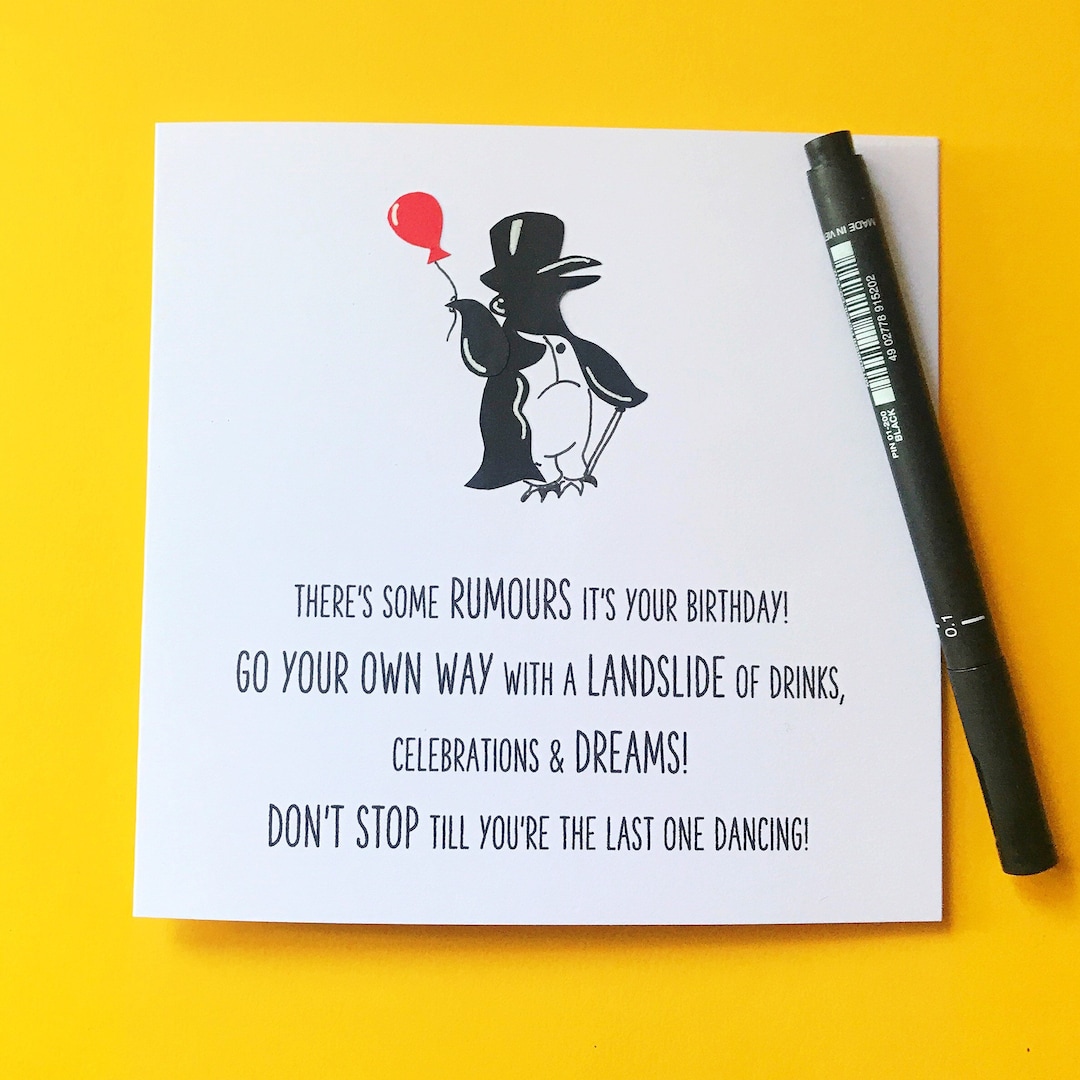 THERE'S SOME RUMOURS IT'S YOUR BIRTHDAY!
GO YOUR OWN WAY WITH A LANDSLIDE OF DRINKS,
CELEBRATIONS & DREAMS!
DON'T STOP TILL YOU'RE THE LAST ONE DANCING!
MADE IN
49 02778 915202
PIN 01-200
BLACK
0.1